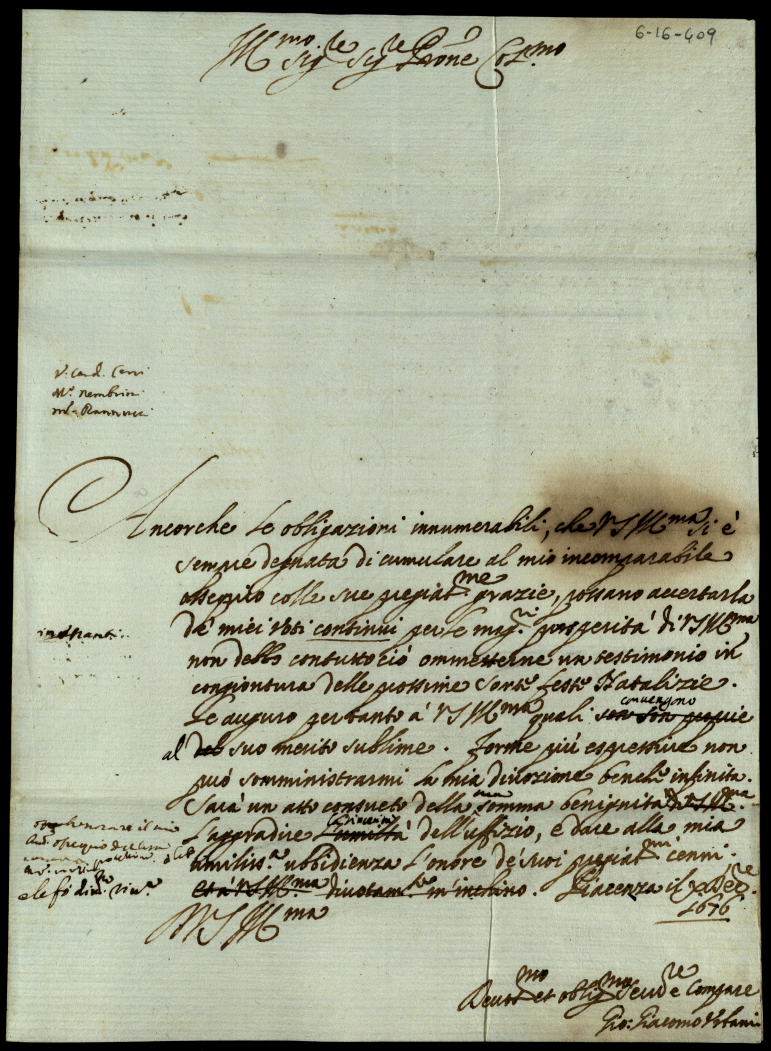 6-16-409
Ill.mo Sig.re Sig.re Prone Col.mo
V. Card. Cerri
Mr. Nembrini
Ancorche le obligazioni innumerabili, che VS Ill.ma si è
sempre degnata di cumulare al mio incomparabile
ossequio colle sue pregiat.me grazie, possano accertarla
de' miei voti continui per le mag.ri prosperità di VS Ill.ma
non debbo contuttociò ommetterne un testimonio in
congiontura delle prossime Sante feste Natalizie.
Le auguro per tanto à VS Ill.ma quali son son proprie
convengono
al del suo merito sublime. Forme più espressive non
può somministrarmi la mia divozione benche infinita.
Sarà un atto consueto della somma benignità di VS Ill.ma
sua
l'aggradire l'umiltà dell'uffizio, e dare alla mia
umiliss.a ubbidienza l'onore de' suoi pregiat.mi cenni.
et à VS Ill.ma divotam.te m'inchino. Piacenza il x Dec.re
1676
VS Ill.ma
Devot.mo et oblig.mo Serv.re e Compare
Gio: Giacomo Vitani